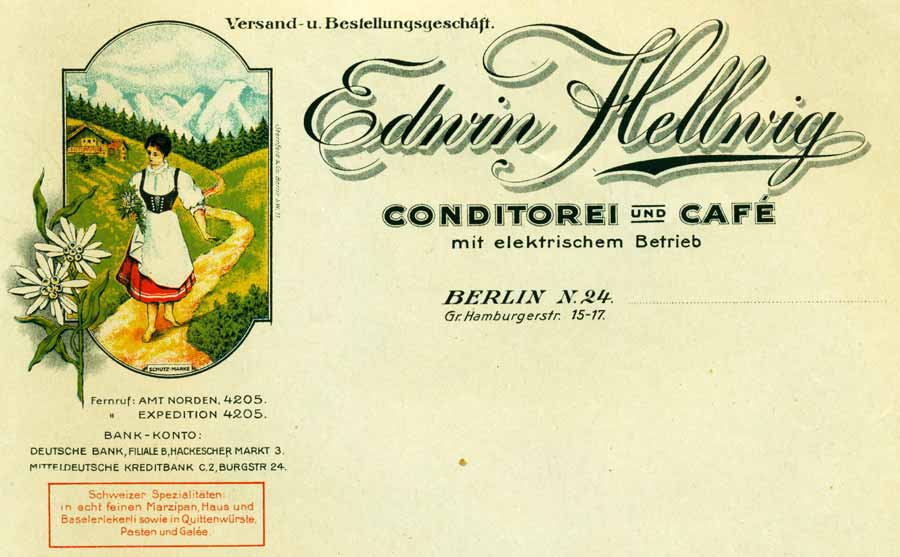 Versand- u. Bestellungsgeschäft.
Edwin Hellwig
CONDITOREI UND CAFÉ
mit elektrischem Betrieb
BERLIN N. 24.
Gr. Hamburgerstr. 15-17.
SCHUTZ-MARKE
Fernruf: AMT NORDEN, 4205.
" EXPEDITION 4205.
BANK-KONTO:
DEUTSCHE BANK, FILIALE B, HACKESCHER MARKT 3.
MITTELDEUTSCHE KREDITBANK C.2, BURGSTR 24.
Schweizer Spezialitäten:
in echt feinen Marzipan, Haus und
Baselerlekerli sowie in Quittenwürste,
Pasten und Galée.